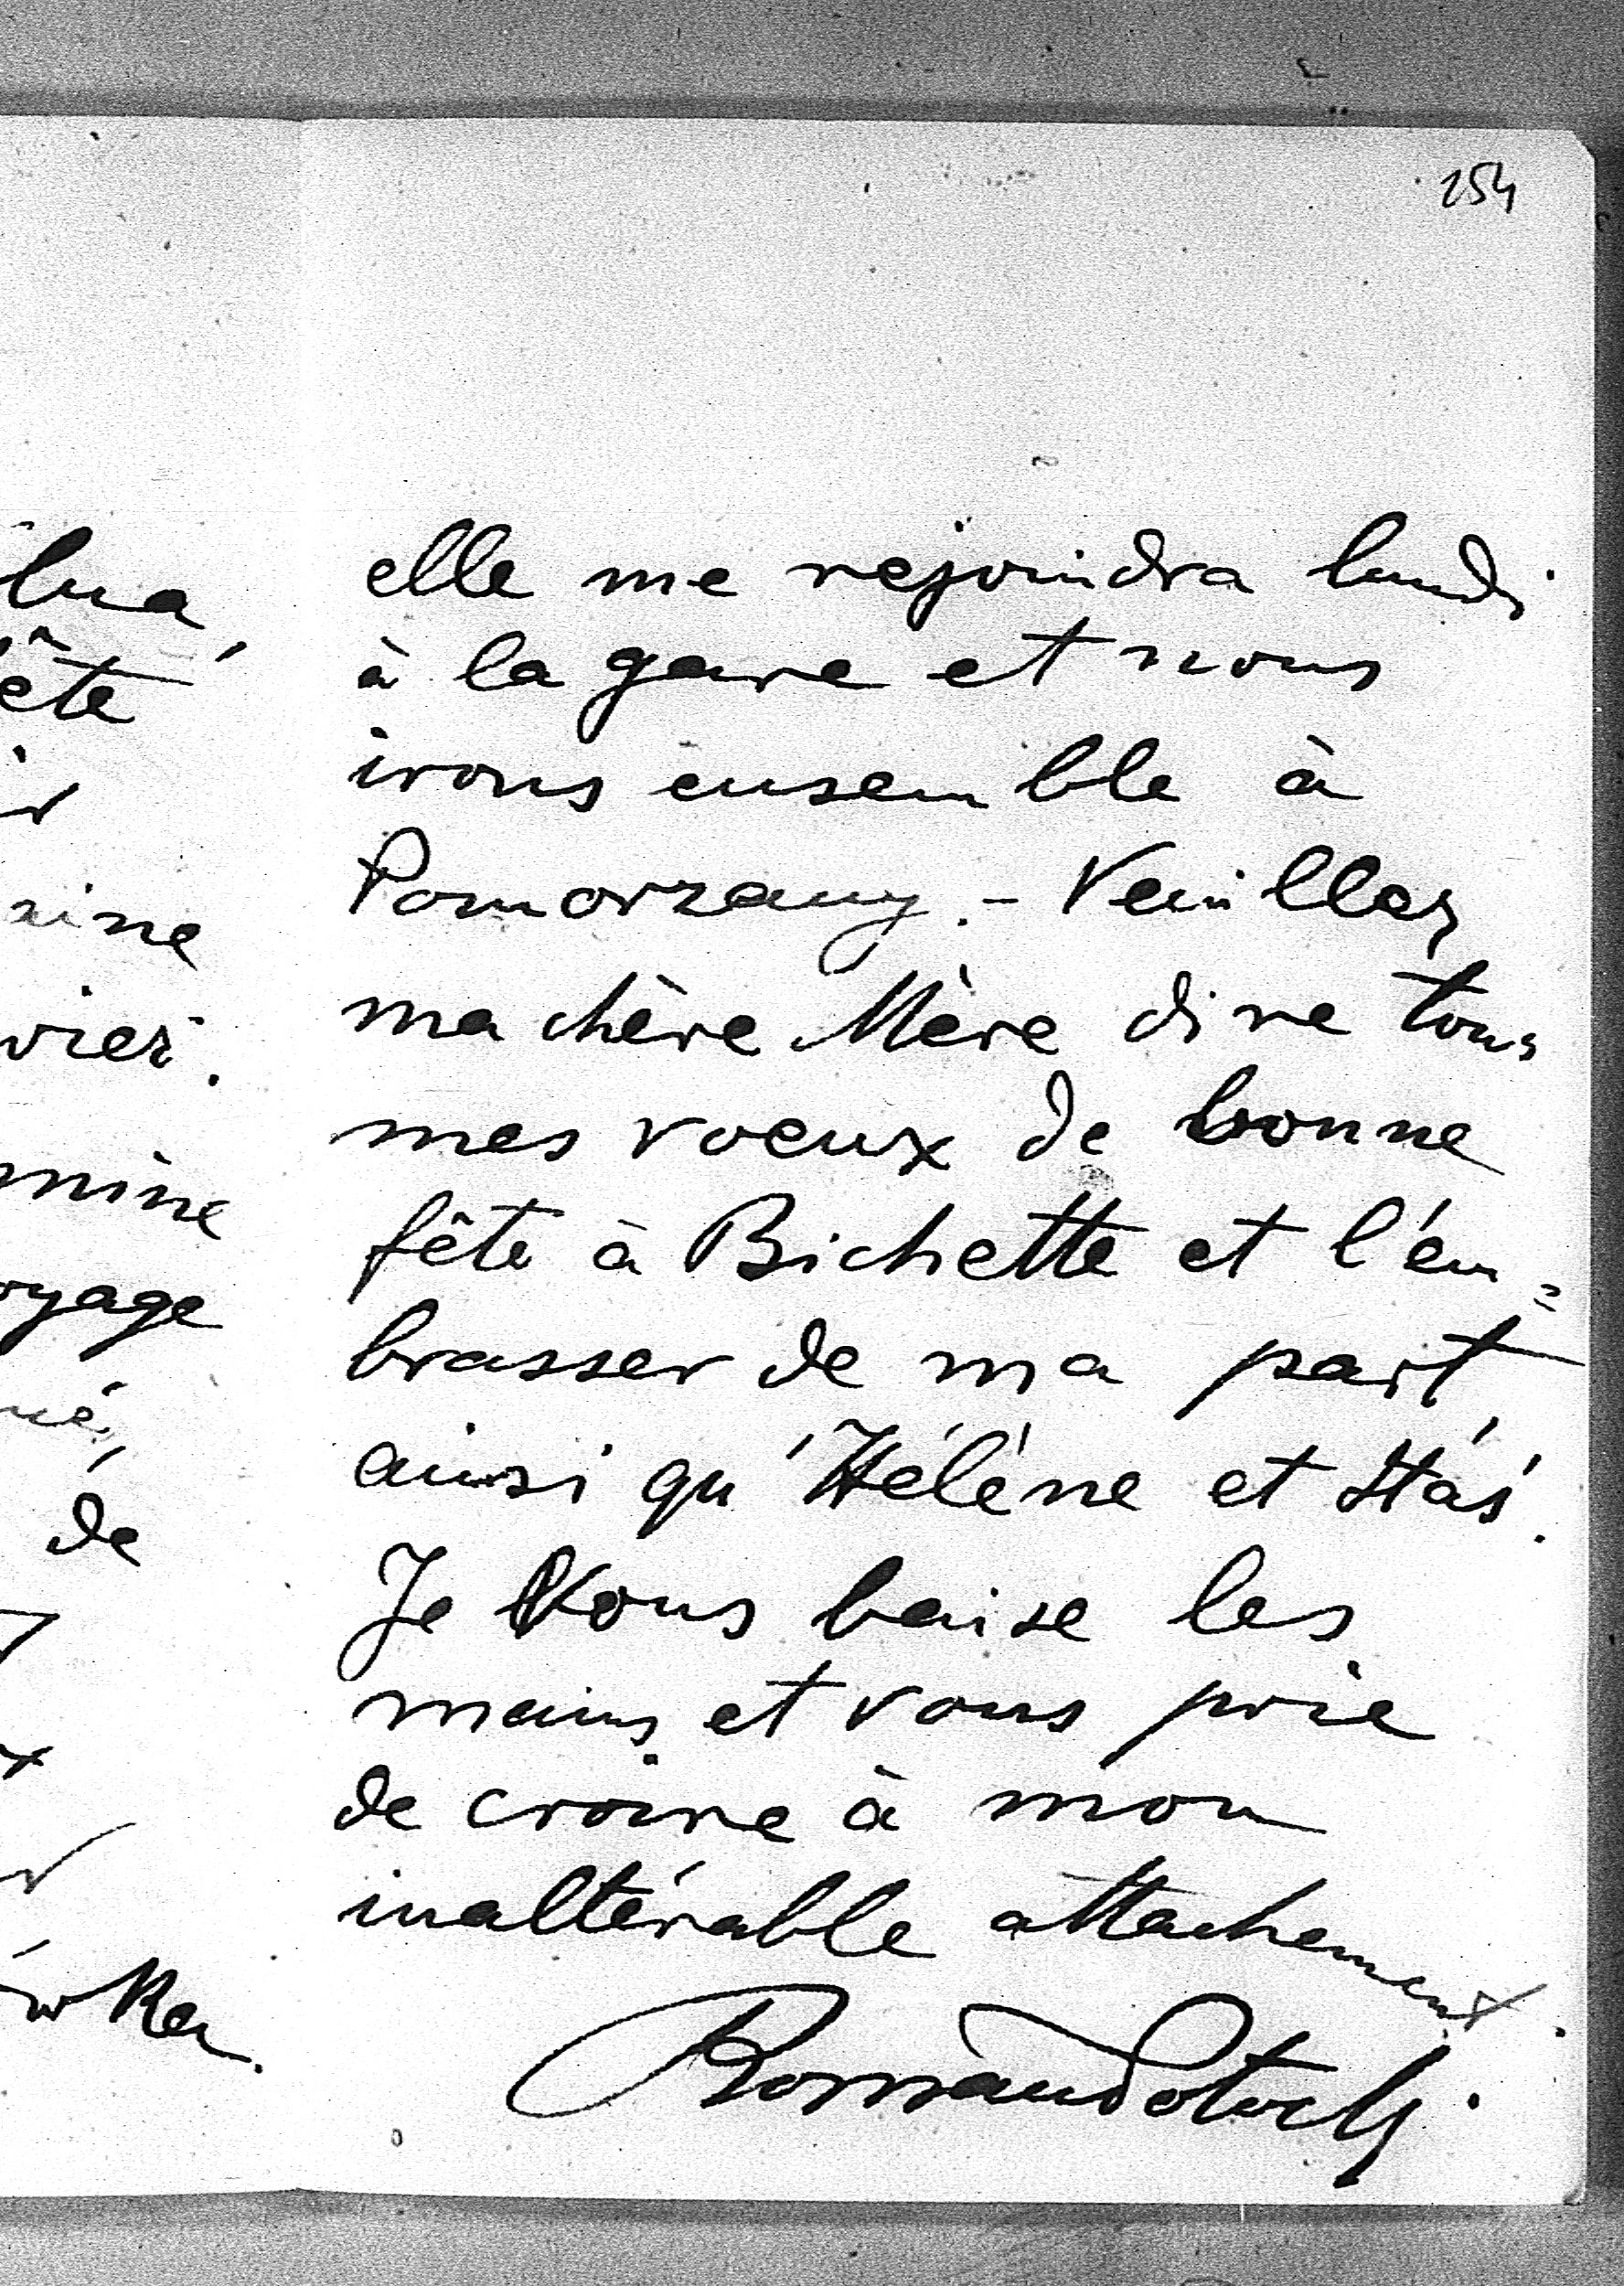 254
elle me rejoindra lundi
à la gare et nous
irons ensemble à
Pomorzany. - Veuillez
ma chère Mère dire tous
mes voeux de bonne
fête à Bichette et l'em=
brasser de ma part
ainsi qu'Hélène et Staś.
Je Vous baise les
mains et vous prie
de croire à mon
inaltérable attachement.
Roman Potocki
ête
aine
vier.
mine
oyage
de